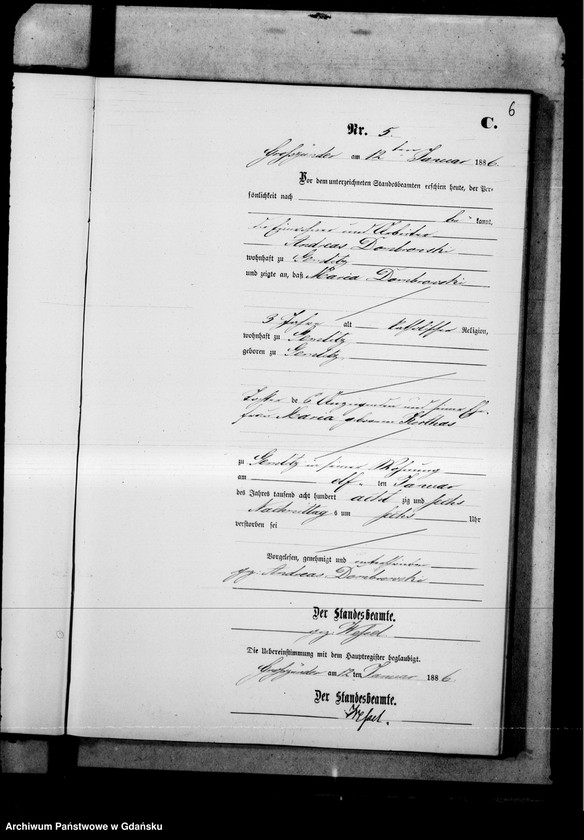 6
C.
Nr. 5.
am 12 ten Januar 1886.
Vor dem unterzeichneten Standesbeamten erschien heute, der Per-
sönlichkeit nach
be kannt,
und Arbeiter
Andreas Dombrowski
wohnhaft zu Gemlitz
und zeigte an, daß Maria Dombrowski
3 Jahre alt katholischer Religion,
wohnhaft zu Gemlitz
geboren zu Gemlitz
Tochter des Anzeigenden und seiner Ehe-
frau Maria geborene
zu Gemlitz in seiner Wohnung
am elf ten Januar
des Jahres tausend acht hundert acht zig und sechs
Nachmittags um sechs Uhr
verstorben sei
Vorgelesen, genehmigt und unterschrieben
gez. Andreas Dombrowski
Der Standesbeamte.
gez. Wessel
Die Uebereinstimmung mit dem Hauptregister beglaubigt.
am 12 ten Januar 1886.
Der Standesbeamte.
Wessel.
Archiwum Państwowe w Gdańsku